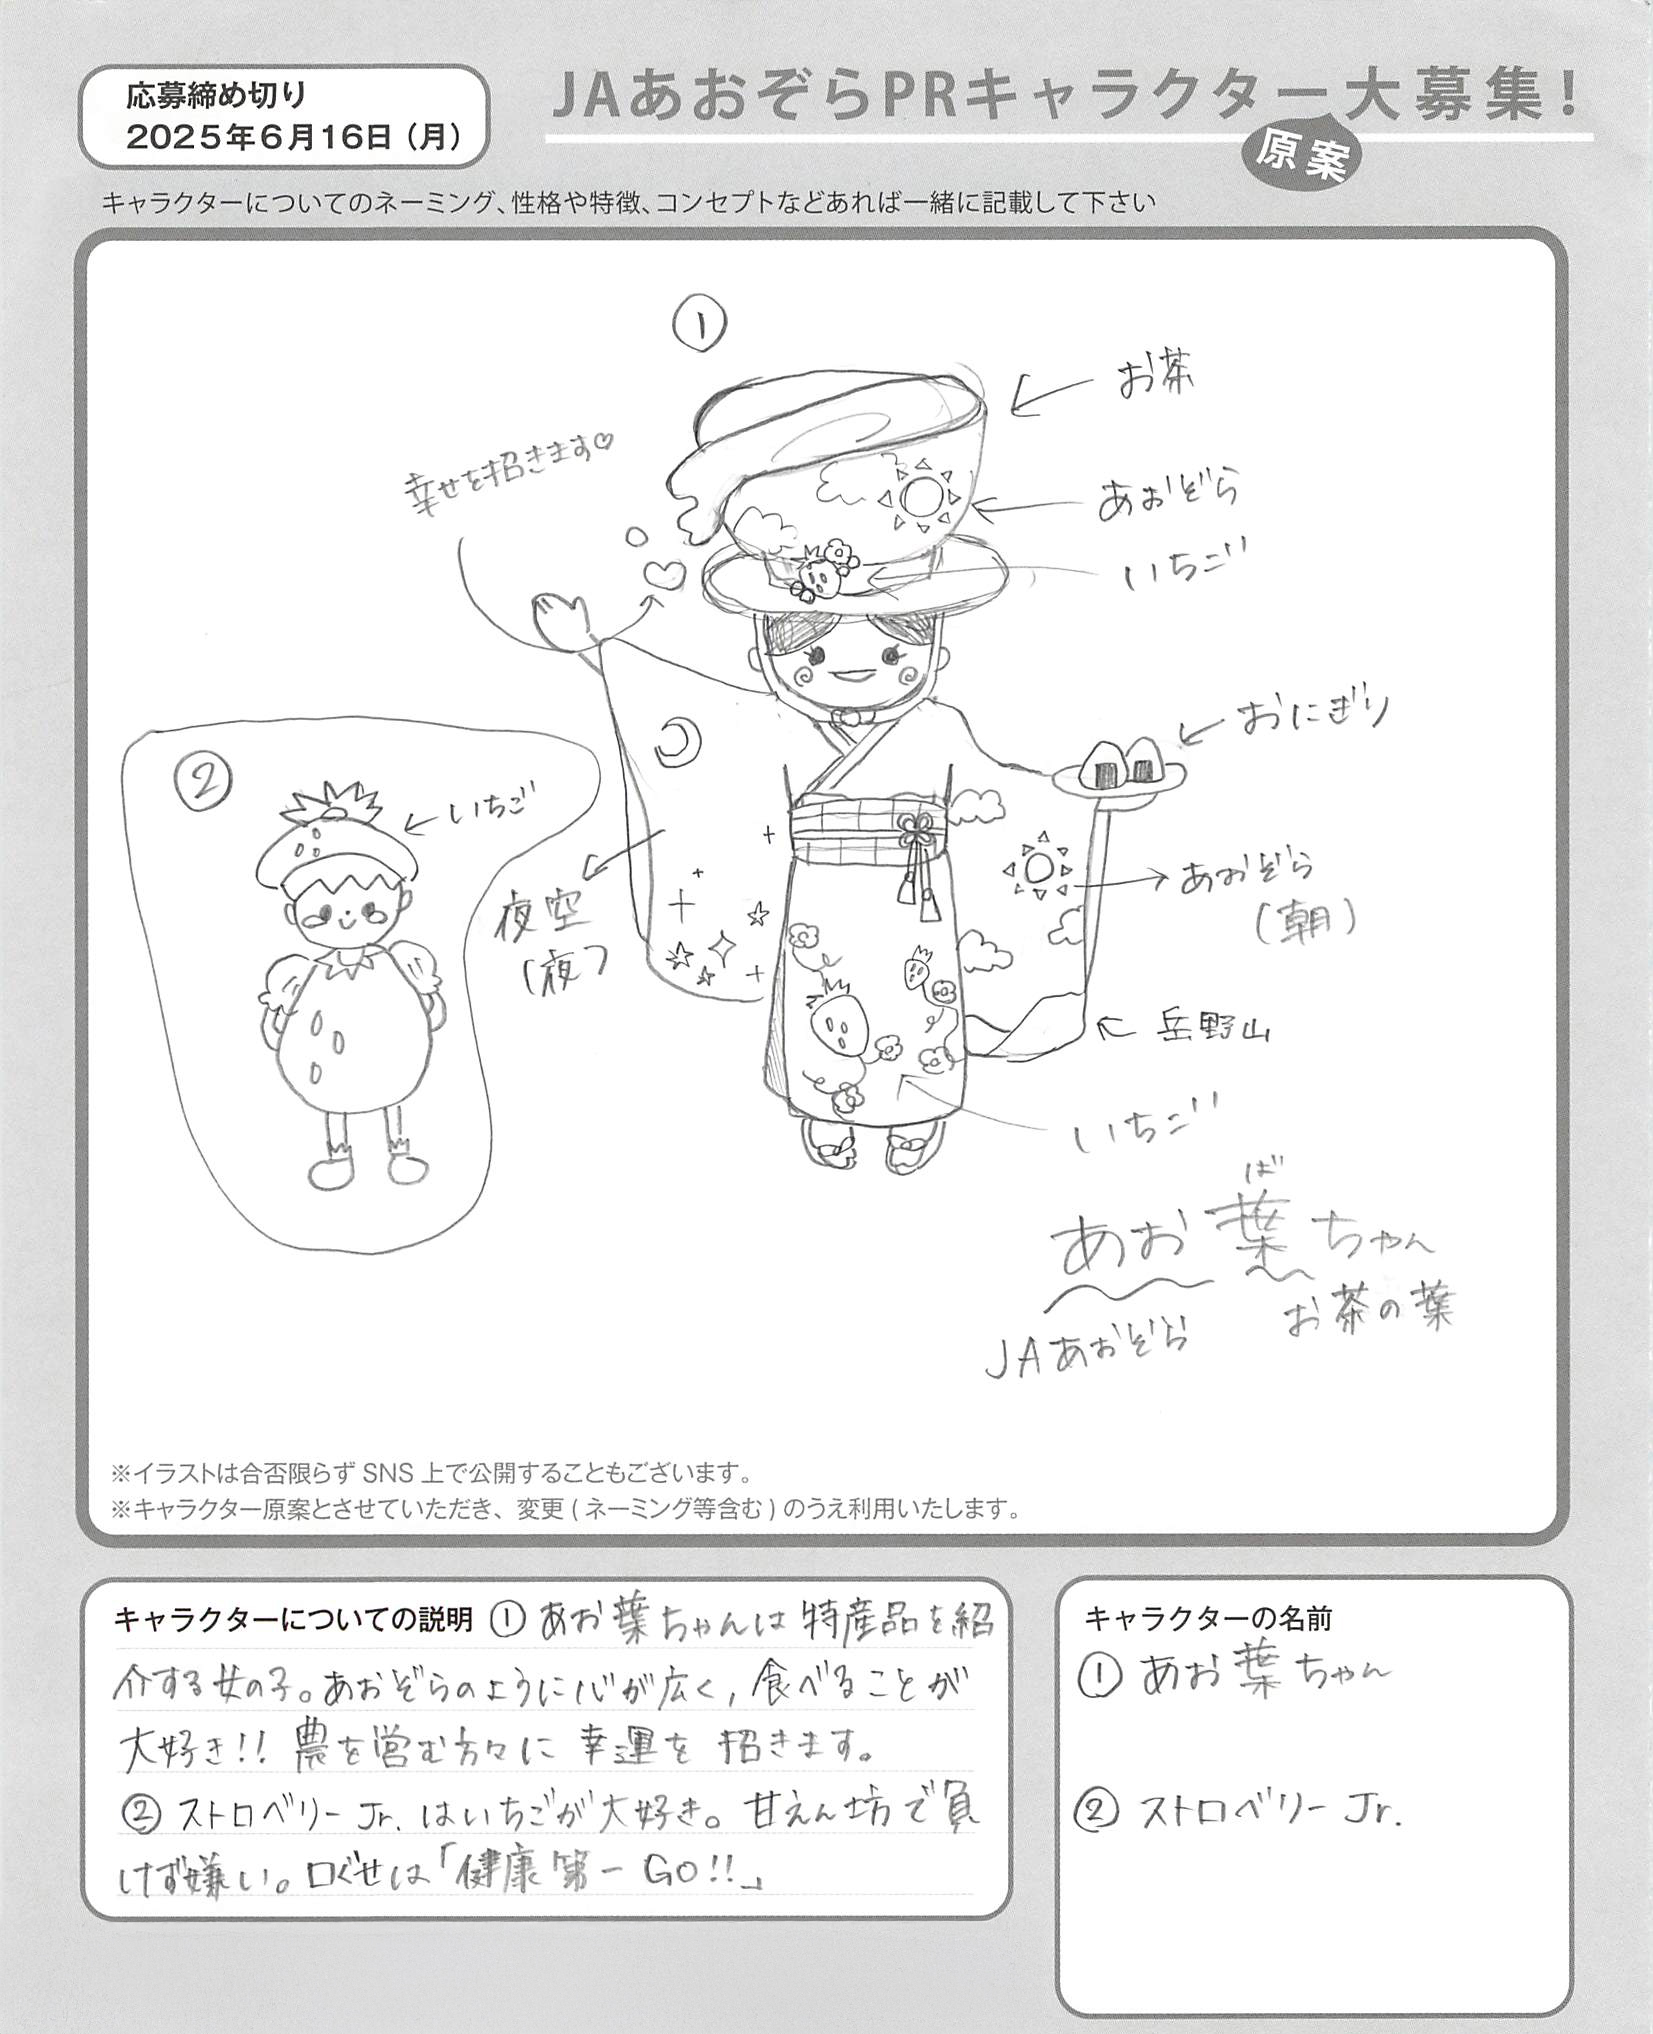 応募締め切り
2025年6月16日（月）
JAあおぞらPRキャラクター大募集！
原案
キャラクターについてのネーミング、性格や特徴、コンセプトなどあれば一緒に記載して下さい
①
お茶
幸せを招きます♡
あおぞら
いちご
おにぎり
②
いちご
夜空
（夜）
あおぞら
（朝）
岳野山
いちご
ば
あお葉ちゃん
お茶の葉
JAあおぞら
※イラストは合否限らずSNS上で公開することもございます。
※キャラクター原案とさせていただき、変更(ネーミング等含む)のうえ利用いたします。
キャラクターについての説明 ①あお葉ちゃんは特産品を紹
介する女の子。あおぞらのように心が広く,食べることが
大好き!! 農を営む方々に幸運を招きます。
②ストロベリーJr.はいちごが大好き。甘えん坊で負
けず嫌い。口ぐせは「健康第一GO!!」
キャラクターの名前
①あお葉ちゃん
②ストロベリーJr.